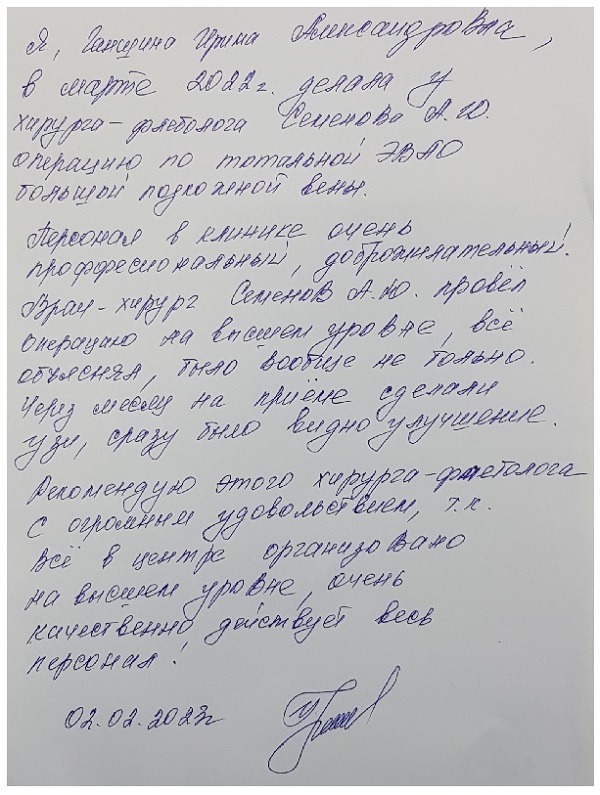 Я, Ганщина Ирина Александровна,
в марте 2022г. делала у
хирурга-флеболога Семенова А.Ю.
операцию по тотальной ЭВЛО
большой подкожной вены.
Персонал в клинике очень
проффесиональный, доброжелательный.
Врач-хирург Семенов А.Ю. провёл
операцию на высшем уровне, всё
объяснял, было вообще не больно.
Через месяц на приёме сделали
узи, сразу было видно улучшение.
Рекомендую этого хирурга-флеболога
с огромным удовольствием, т.к.
всё в центре организовано
на высшем уровне, очень
качественно действует весь
персонал!
02.02.2023г